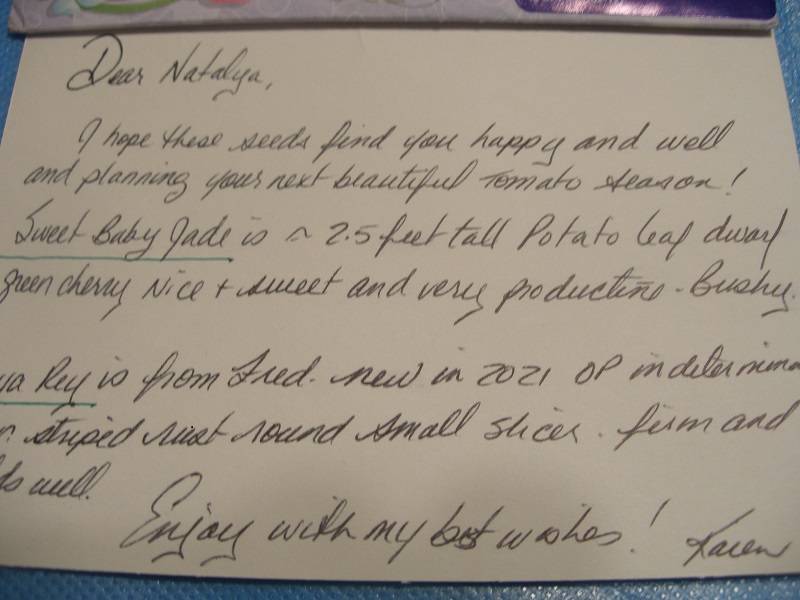 Dear Natalya,
I hope these seeds find you happy and well
and planning your next beautiful Tomato season!
Sweet Baby Jade is ~ 2.5 feet tall Potato leaf dwarf
green cherry Nice + sweet and very productive - bushy.
ya Rey is from Fred. new in 2021 OP indetermina
striped rust round small slicer. firm and
ds well.
Enjoy with my best wishes! Karen